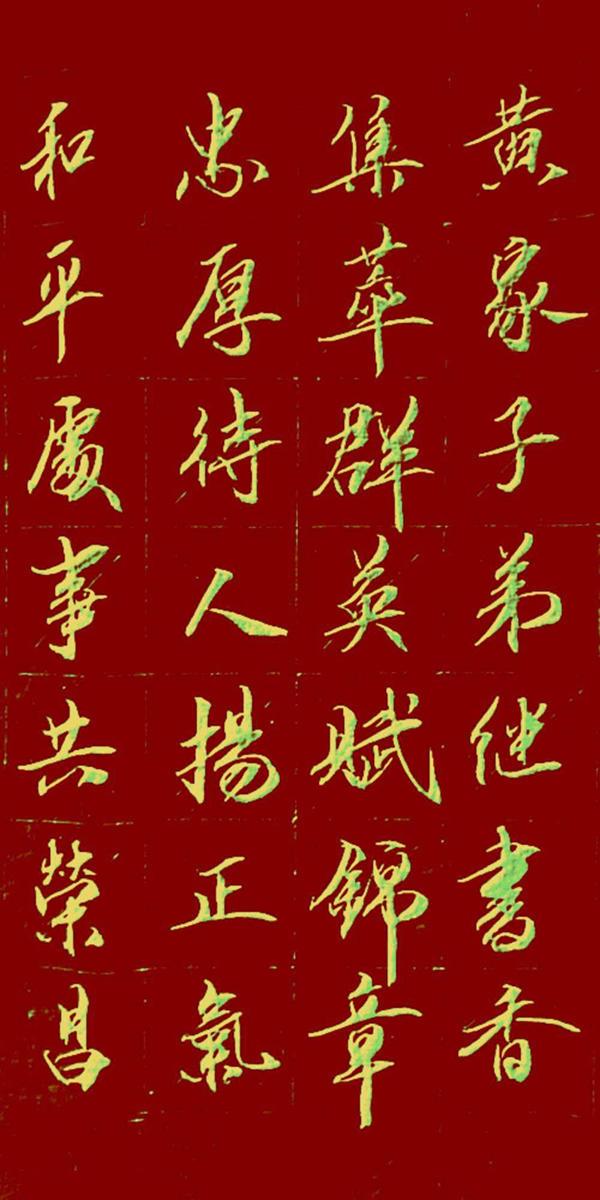 黄家子弟继書香
集萃群英賦錦章
忠厚待人揚正氣
和平處事共榮昌